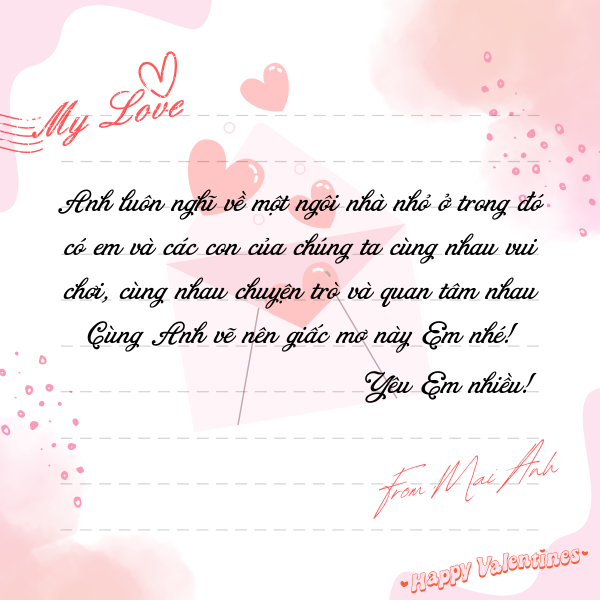 My Love
Anh luôn nghĩ về một ngôi nhà nhỏ ở trong đó
có em và các con của chúng ta cùng nhau vui
chơi, cùng nhau chuyện trò và quan tâm nhau
Cùng Anh vẽ nên giấc mơ này Em nhé!
Yêu Em nhiều!
From Mai Anh
Happy Valentines